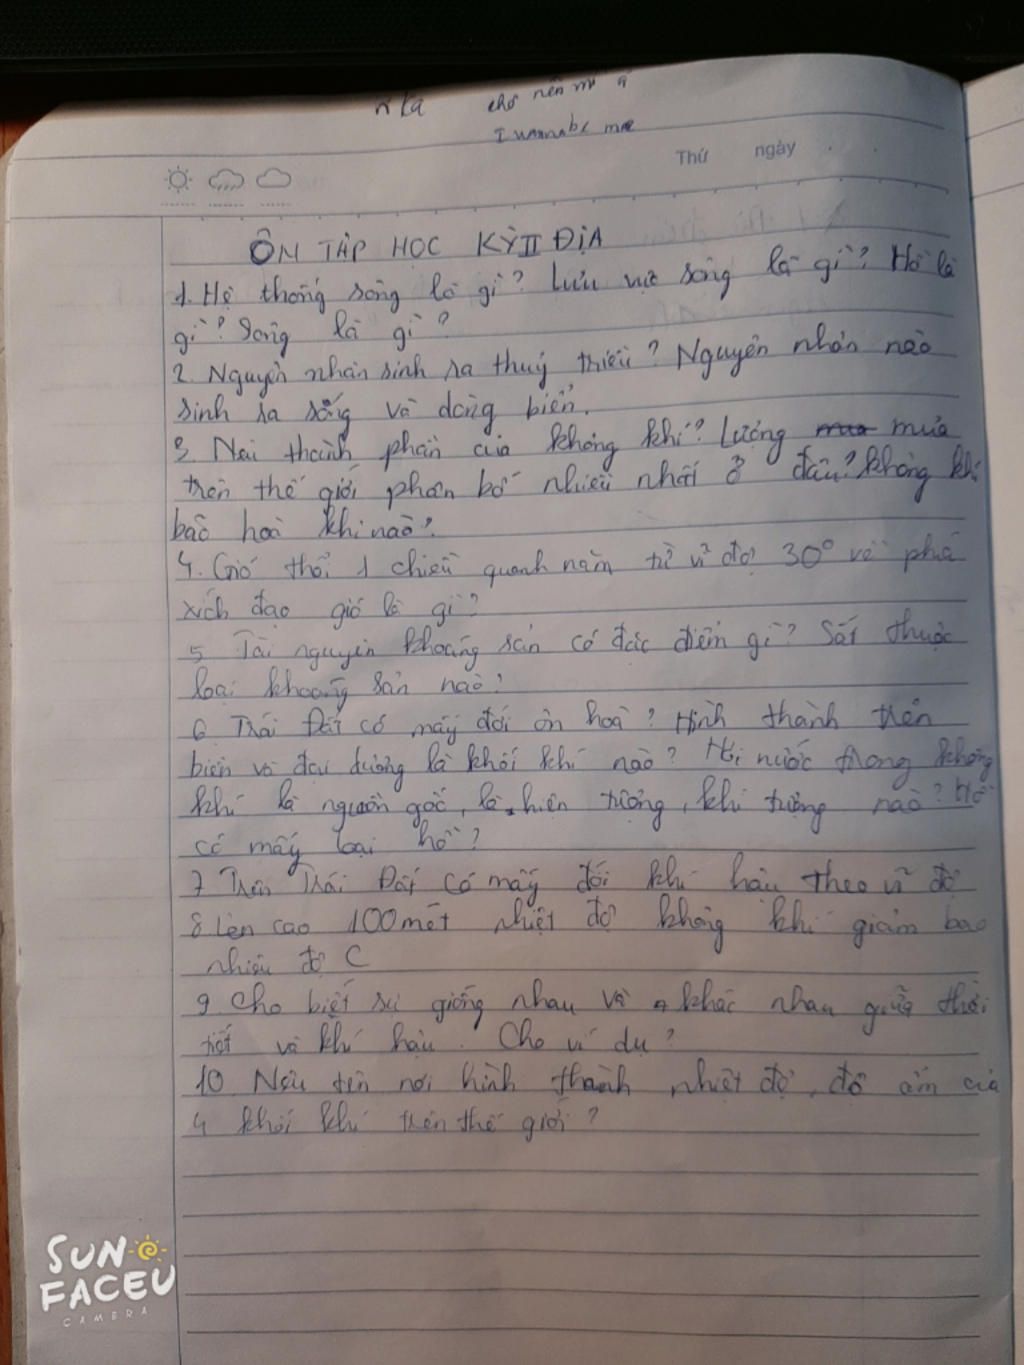 cho nên mr
I wannabe me
Thứ ngày
ÔN TẬP HỌC KỲ II ĐỊA
1. Hệ thống sông là gì? Lưu vực sông là gì? Hồ là
gì? Sông là gì?
2. Nguyên nhân sinh ra thuỷ triều? Nguyên nhân nào
sinh ra sóng và dòng biển.
3. Nêu thành phần của không khí? Lượng mưa
trên thế giới phân bố nhiều nhất ở đâu? không khí
bão hoà khi nào?
4. Gió thổi 1 chiều quanh năm từ vĩ độ 30° về phía
xích đạo gió là gì?
5 Tài nguyên khoáng sản có đặc điểm gì? Sắt thuộc
loại khoáng sản nào?
6 Trái Đất có mấy đới ôn hoà? Hình thành trên
biển và đại dương là khối khí nào? Hơi nước trong không
khí là nguồn gốc, là hiện tượng, khí tượng nào? Hồ
có mấy loại hồ?
7 Trên Trái Đất có mấy đới khí hậu theo vĩ độ
8 Lên cao 100 mét nhiệt độ không khí giảm bao
nhiêu độ C
9. Cho biết sự giống nhau và khác nhau giữa thời
tiết và khí hậu. Cho ví dụ?
10 Nêu tên nơi hình thành, nhiệt độ, độ ẩm của
4 khối khí trên thế giới?
SUN
FACEU
CAMERA